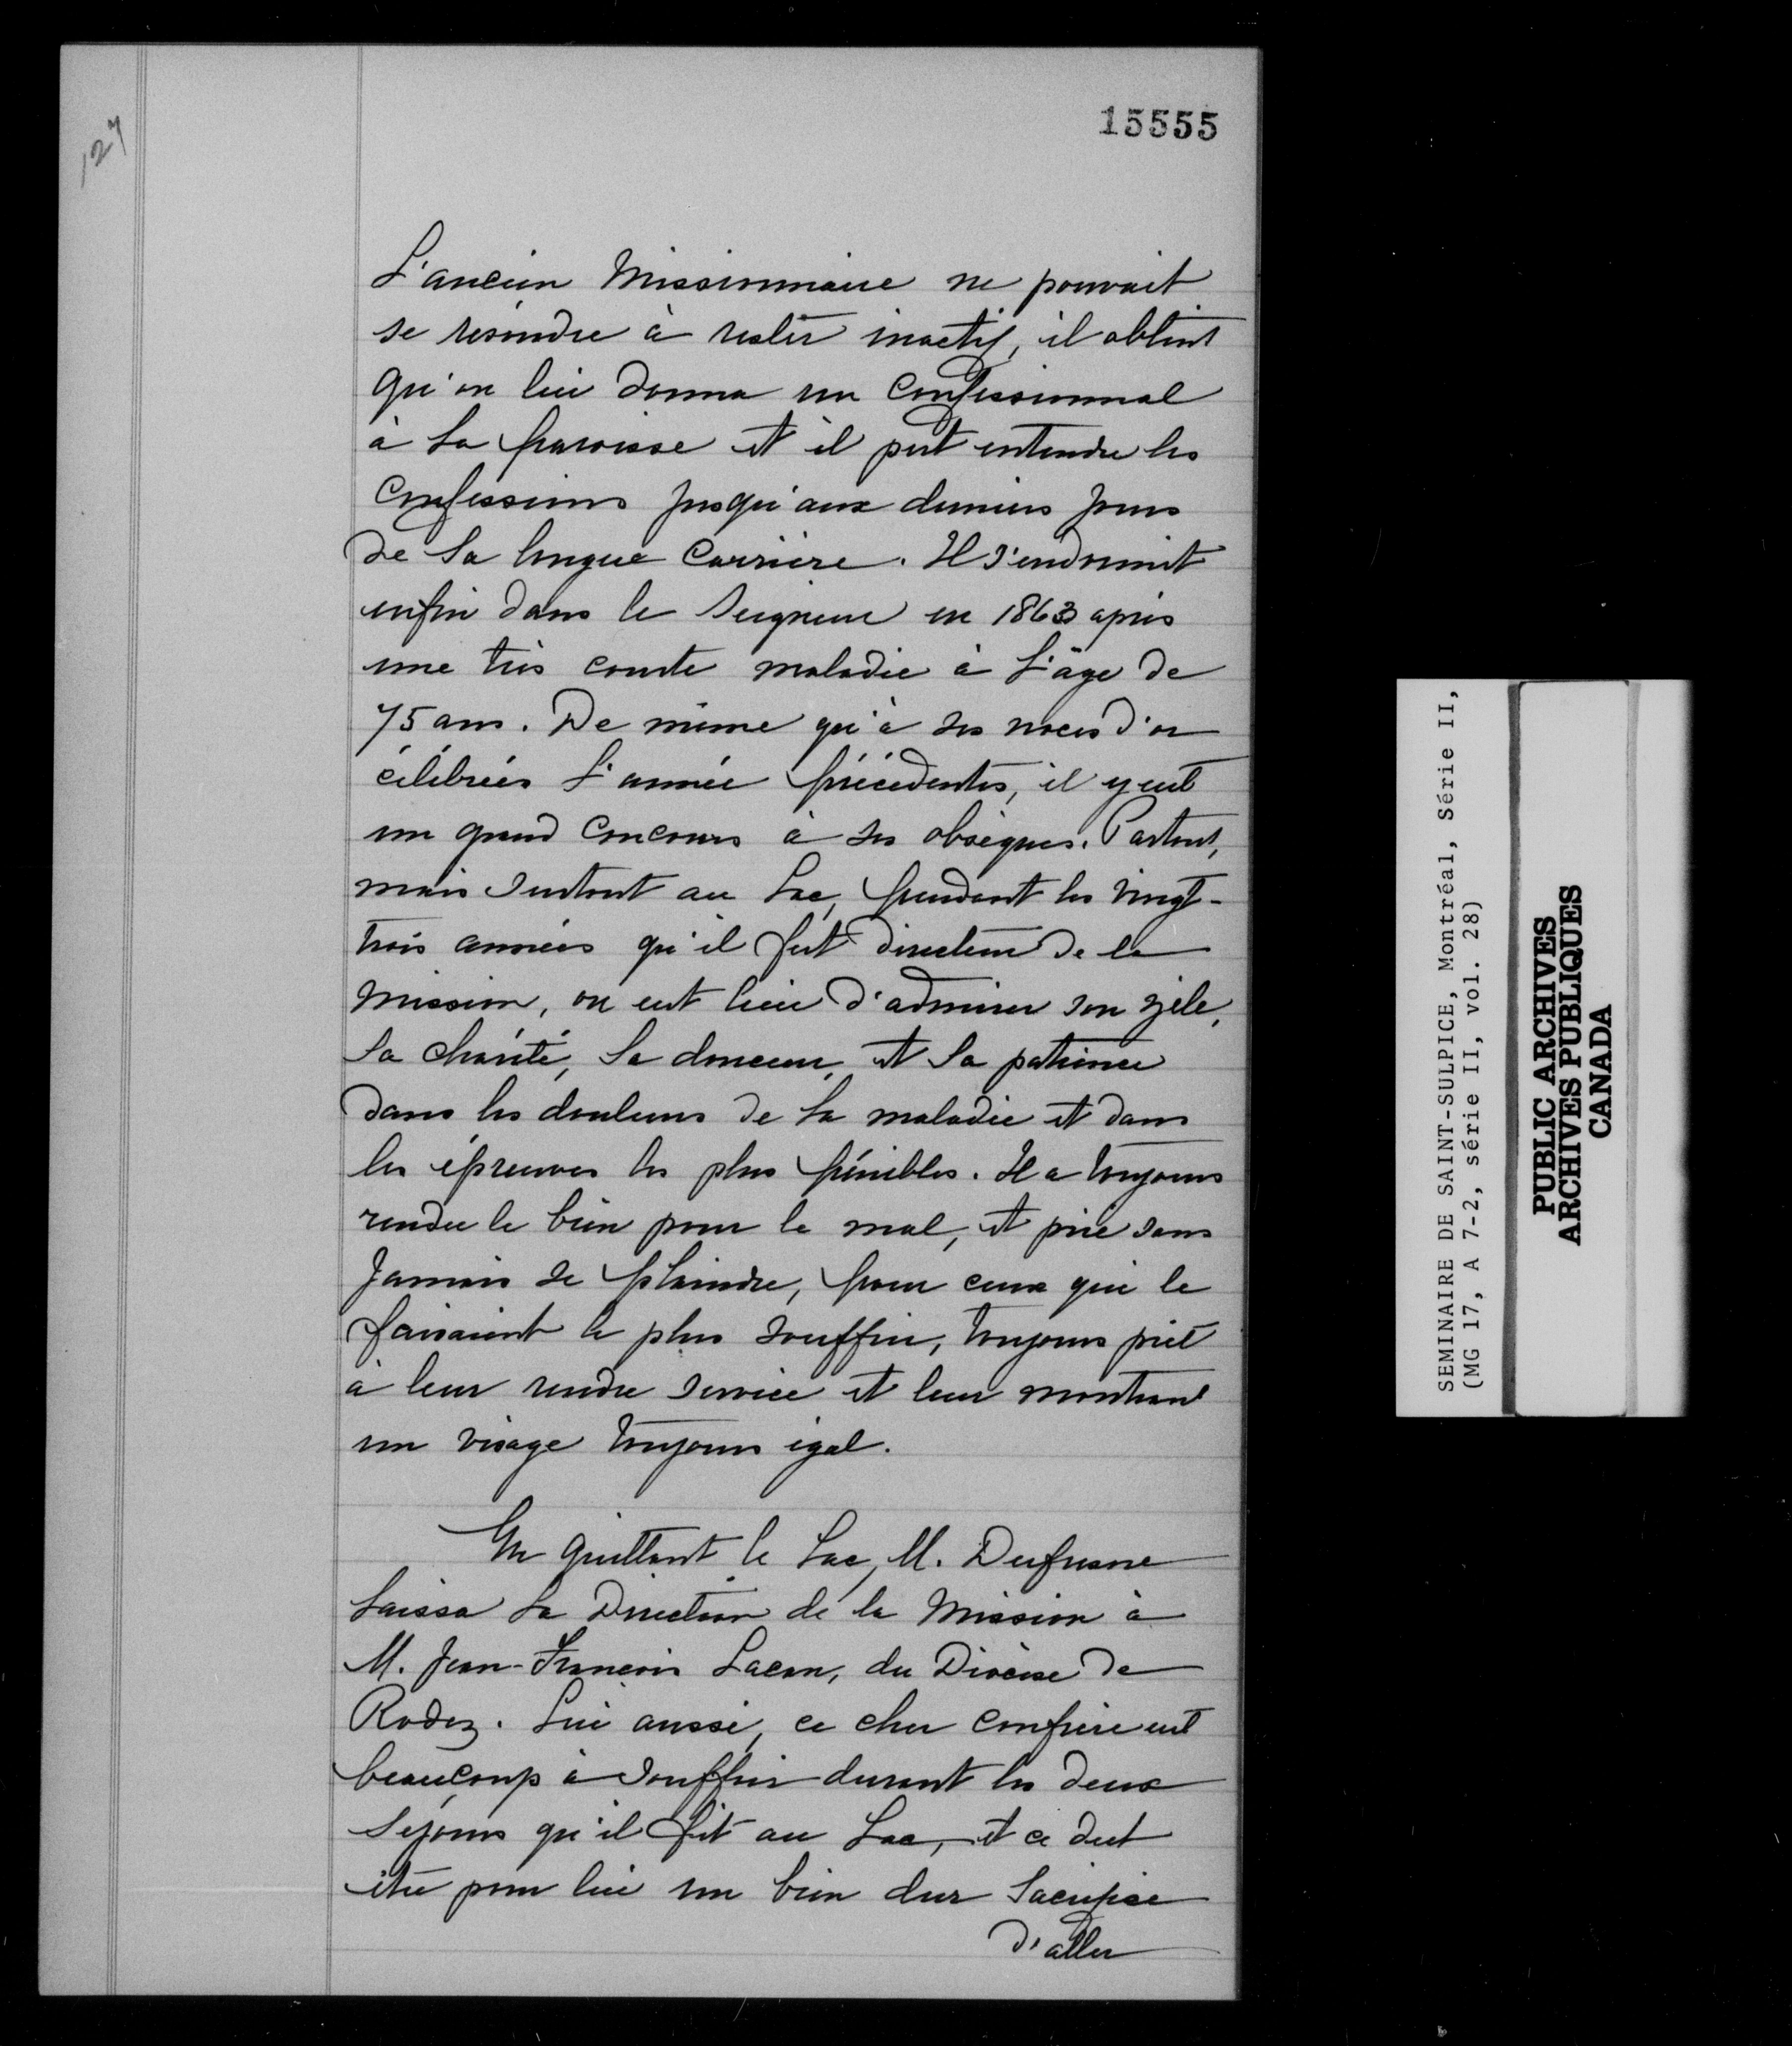 127
15555
L'ancien Missionnaire ne pouvait
se résoudre à rester inactif, il obtint
qu'on lui donna un Confessionnal
à la paroisse et il put entendre les
Confessions jusqu'aux derniers jours
de sa longue carrière. Il s'endormit
enfin dans le Seigneur en 1863 après
une très courte maladie à l'âge de
75 ans. De même qu'à ses noces d'or
célébrées l'année précédentes, il y eut
un grand concours à ses obsèques. Partout,
mais surtout au Lac, pendant les vingt-
trois années qu'il fut directeur de la
Mission, on eut lieu d'admirer son zèle,
sa charité, sa douceur, et sa patience
dans les douleurs de la maladie et dans
les épreuves les plus pénibles. Il a toujours
rendu le bien pour le mal, et prié sans
jamais se plaindre, pour ceux qui le
faisaient le plus souffrir, toujours prêt
à leur rendre service et leur montrant
un visage toujours égal.
En quittant le Lac, M. Dufresne
laissa la Direction de la Mission à
M. Jean-François Lacan, du Diocèse de
Rodez. Lui aussi, ce cher confrère eut
beaucoup à souffrir durant les deux
séjours qu'il fit au Lac, et ce dut
être pour lui un bien dur sacrifice
d'aller
SEMINAIRE DE SAINT-SULPICE, Montréal, Série II,
(MG 17, A 7-2, série II, vol. 28)
PUBLIC ARCHIVES
ARCHIVES PUBLIQUES
CANADA